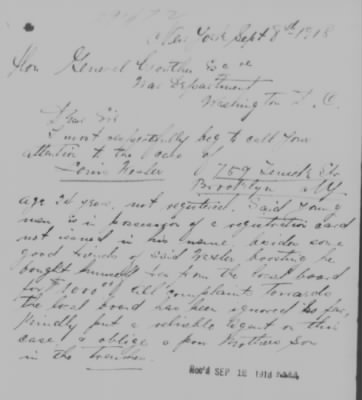 New York Sept 8th 1918
Hon General Crowther
War Department
Washington D. C.
Dear Sir
I most respectfully beg to call your
attention to the case of
Louis Wexler of 759 Street
Brooklyn N.Y.
age 24 years, not registered. Said young
man is in possession of a registration card
not issued in his name, besides some
good friends of said Wexler boasting he
bought himself from the local board
for $1000 all complaint towards
the local board has been ignored so far,
Kindly put a reliable Agent on this
case & oblige a poor Mothers Son
in the Trenches.
Rec'd SEP 16 1918